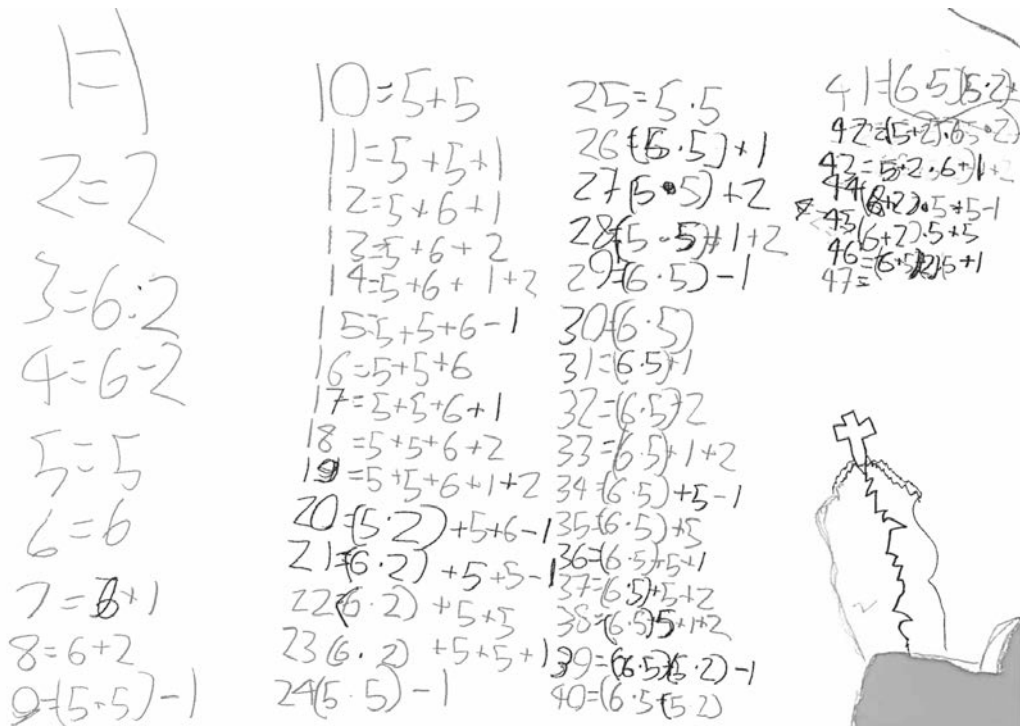 1=1
2=2
3=6:2
4=6-2
5=5
6=6
7=6+1
8=6+2
9=(5+5)-1
10=5+5
11=5+5+1
12=5+6+1
13=5+6+2
14=5+6+1+2
15=5+5+6-1
16=5+5+6
17=5+5+6+1
18=5+5+6+2
19=5+5+6+1+2
20=(5·2)+5+6-1
21=(6·2)+5+5-1
22=(6·2)+5+5
23(6·2)+5+5+1
24(5·5)-1
25=5·5
26=(5·5)+1
27(5·5)+2
28=(5·5)+1+2
29=(6·5)-1
30=(6·5)
31=(6·5)+1
32=(6·5)+2
33=(6·5)+1+2
34=(6·5)+5-1
35=(6·5)+5
36=(6·5)+5+1
37=(6·5)+5+2
38=(6·5)+5+1+2
39=(6·5)+(5·2)-1
40=(6·5+(5·2)
41=(6·5)(5·2)+
42=(5+2)·6
44(6+2)·5+5-1
45(6+2)·5+5
47=